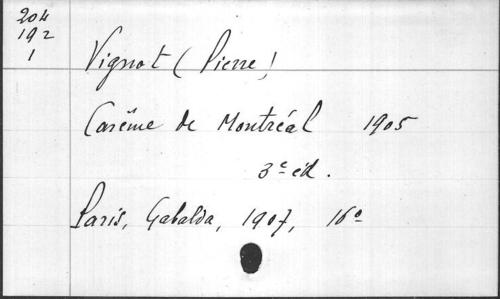 204
192
1
Vignot (Pierre)
Carême de Montréal 1905
3e éd.
Paris, Gabalda, 1907, 16°